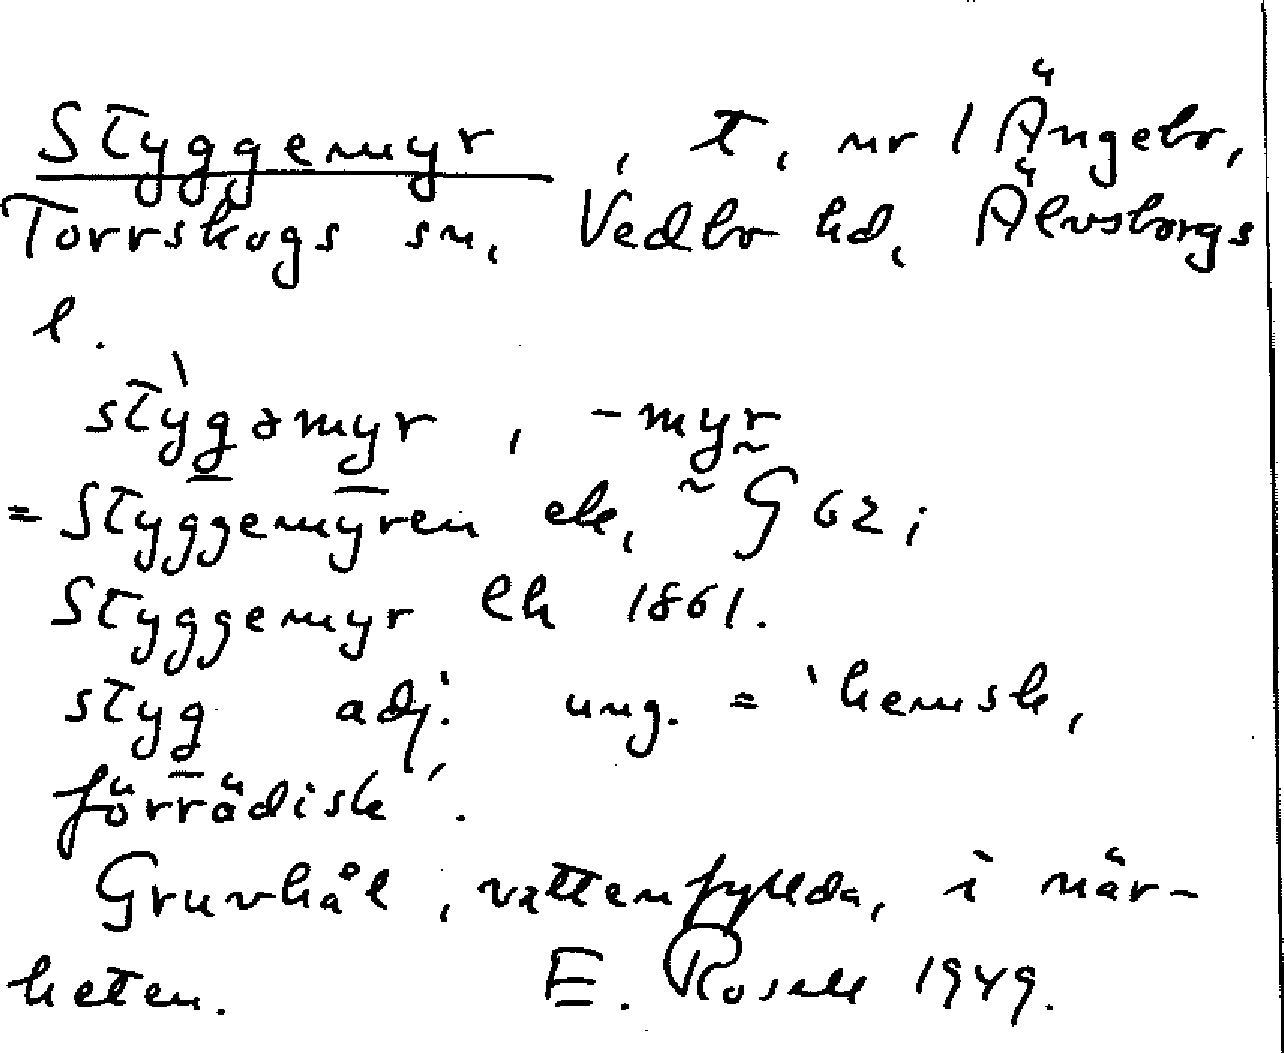 Styggemyr, t. nr 1 Ängebo,
Torrskogs sn, Vedbo hd, Älvsborgs
l.
stỳgəmyr, -myr
= Styggemyren ek, G 62;
Styggemyr Ek 1861.
styg adj. ung. = 'hemsk,
förrädisk'.
Gruvhål, vattenfyllda, i när-
heten. E. Rosell 1949.